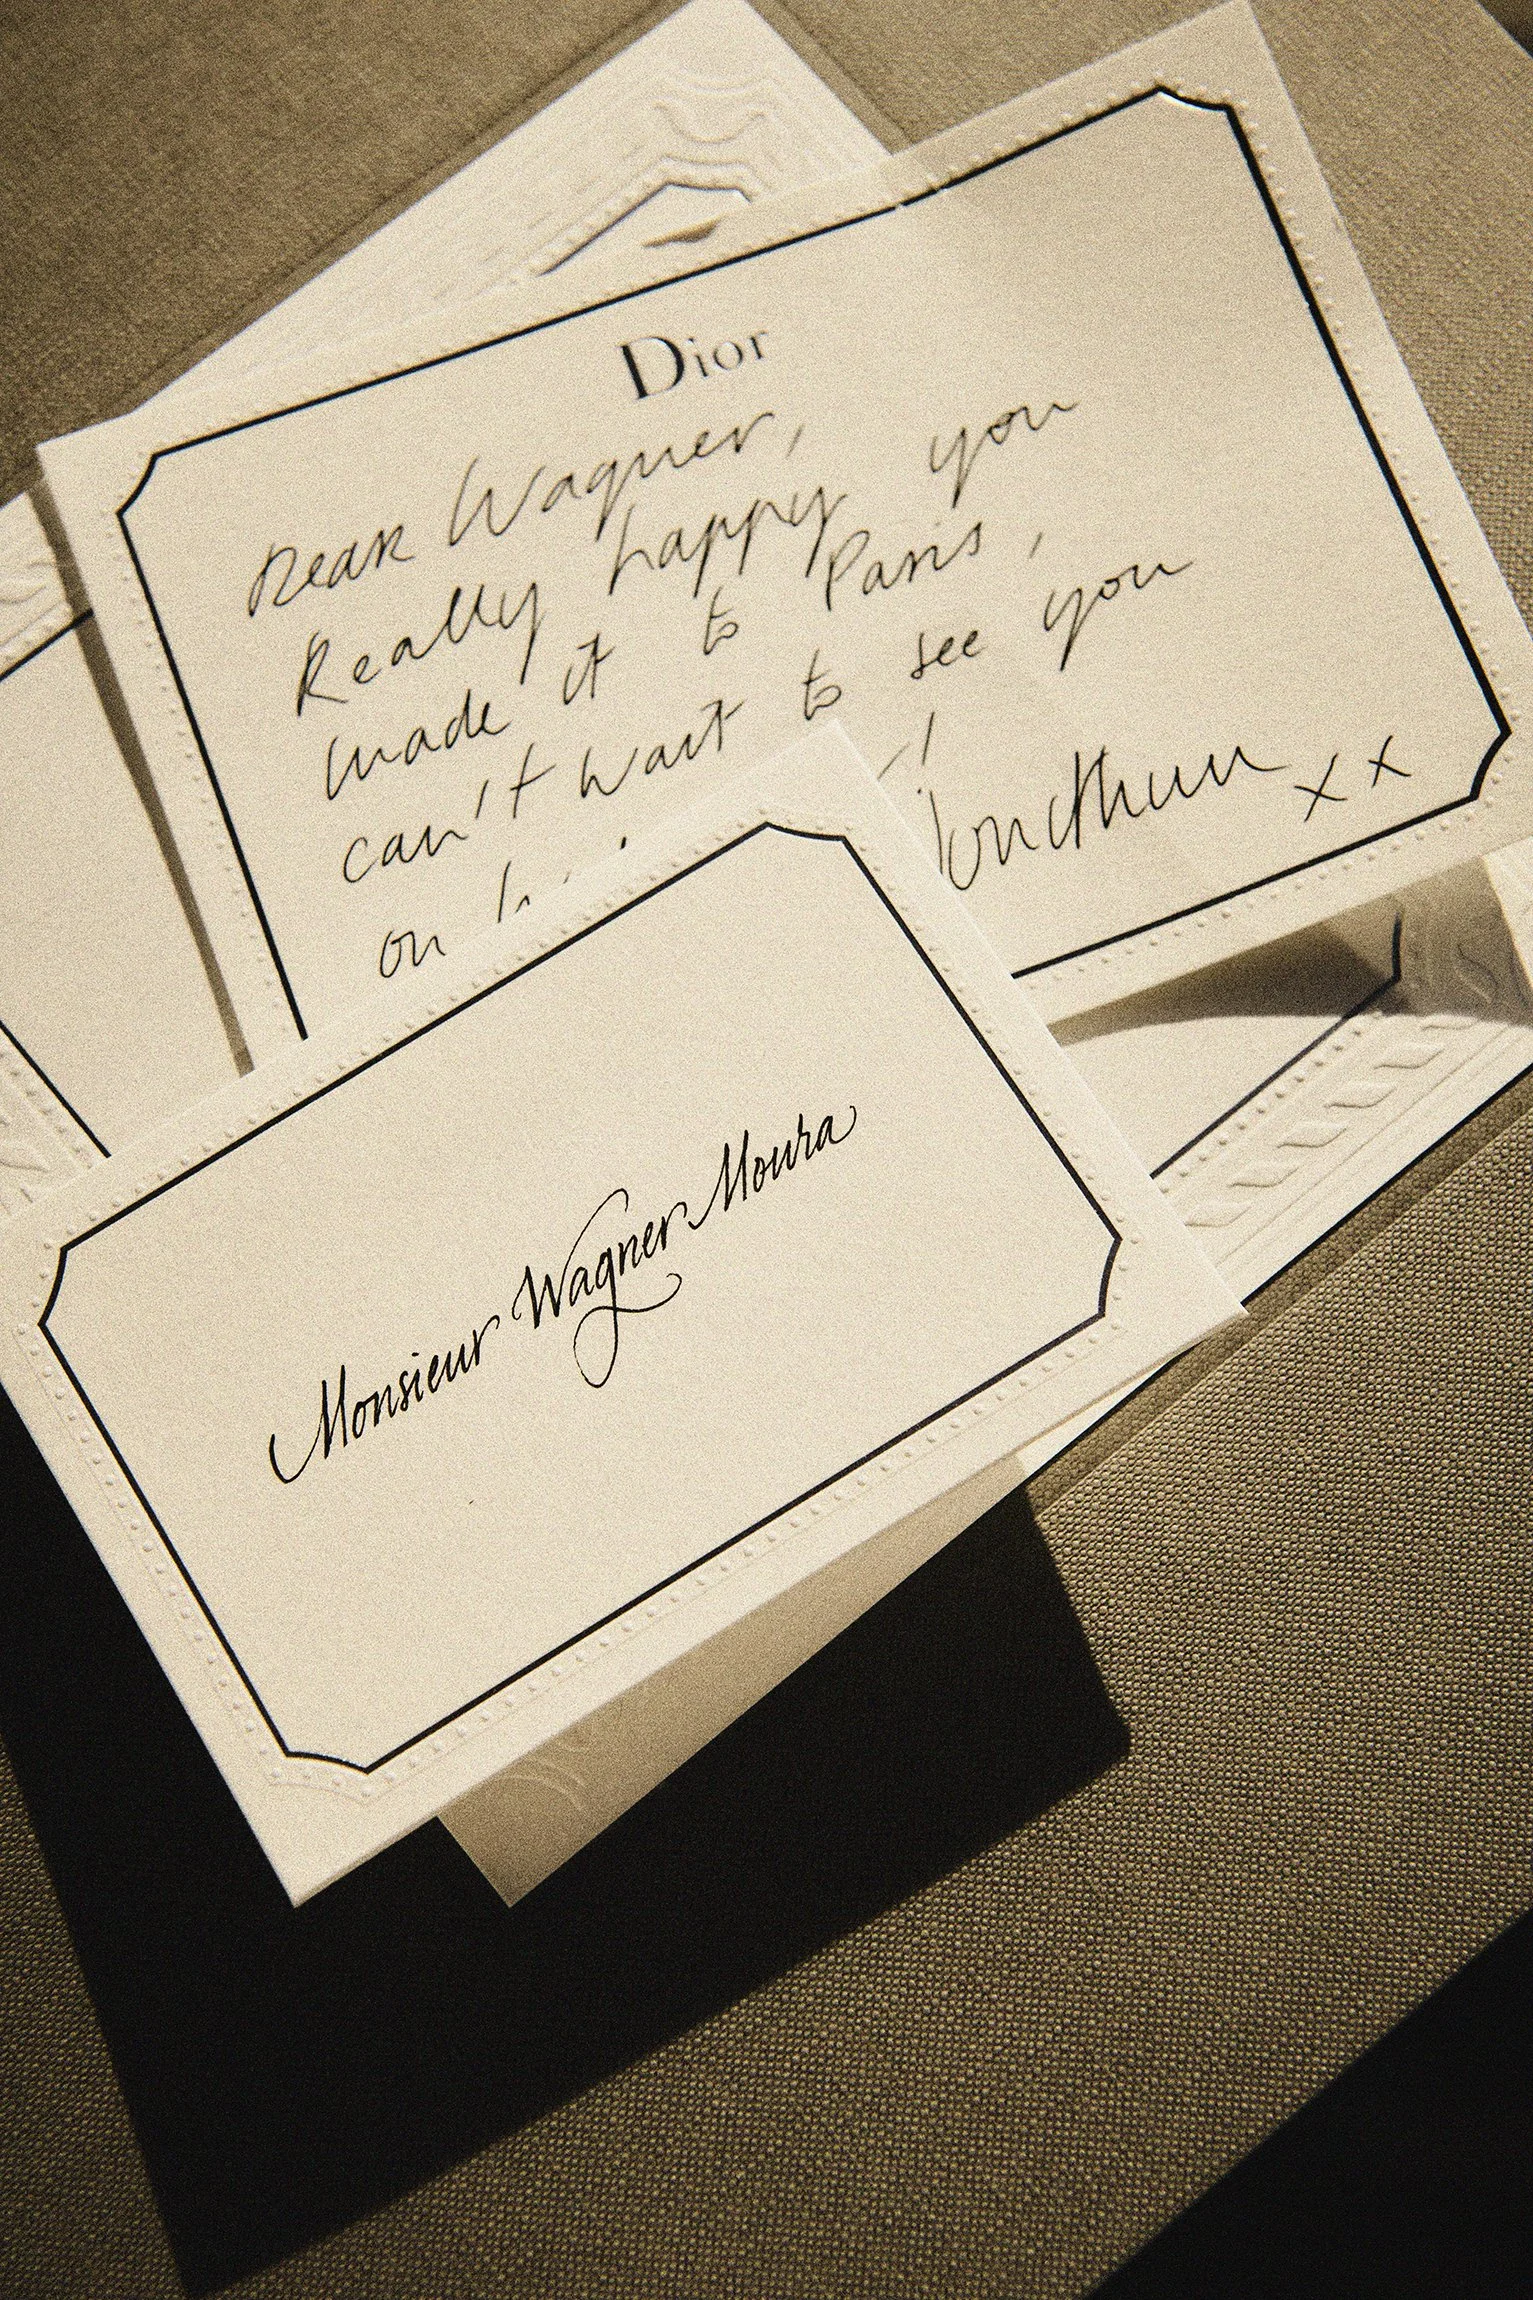 Dior
Dear Wagner,
Really happy you
made it to Paris,
can't wait to see you
on
!
Jonathan xx
Monsieur Wagner Moura